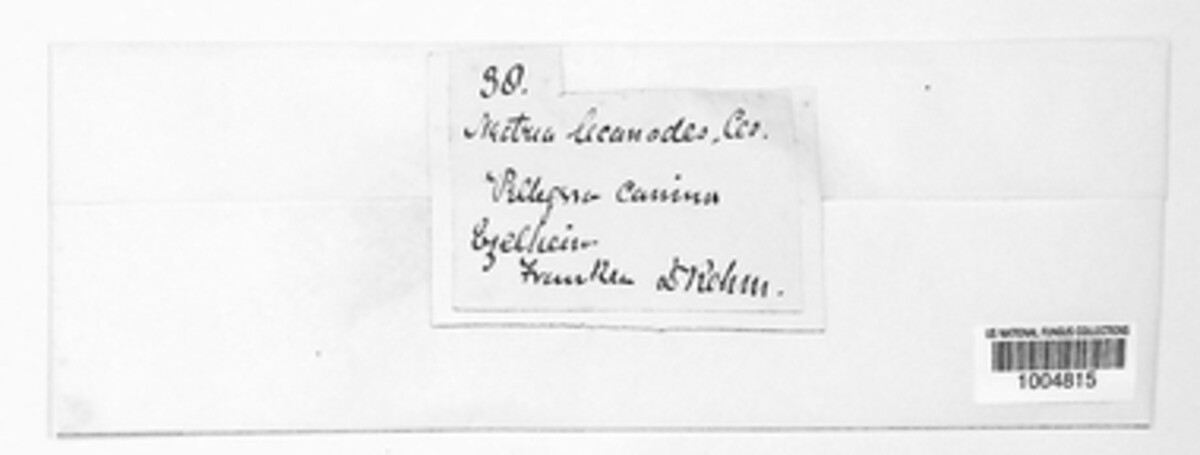 30.
Nectria lecanodes, Ces.
Peltigera canina
Ezelheim
Franken Dr Rehm.
US NATIONAL FUNGUS COLLECTIONS
1004815